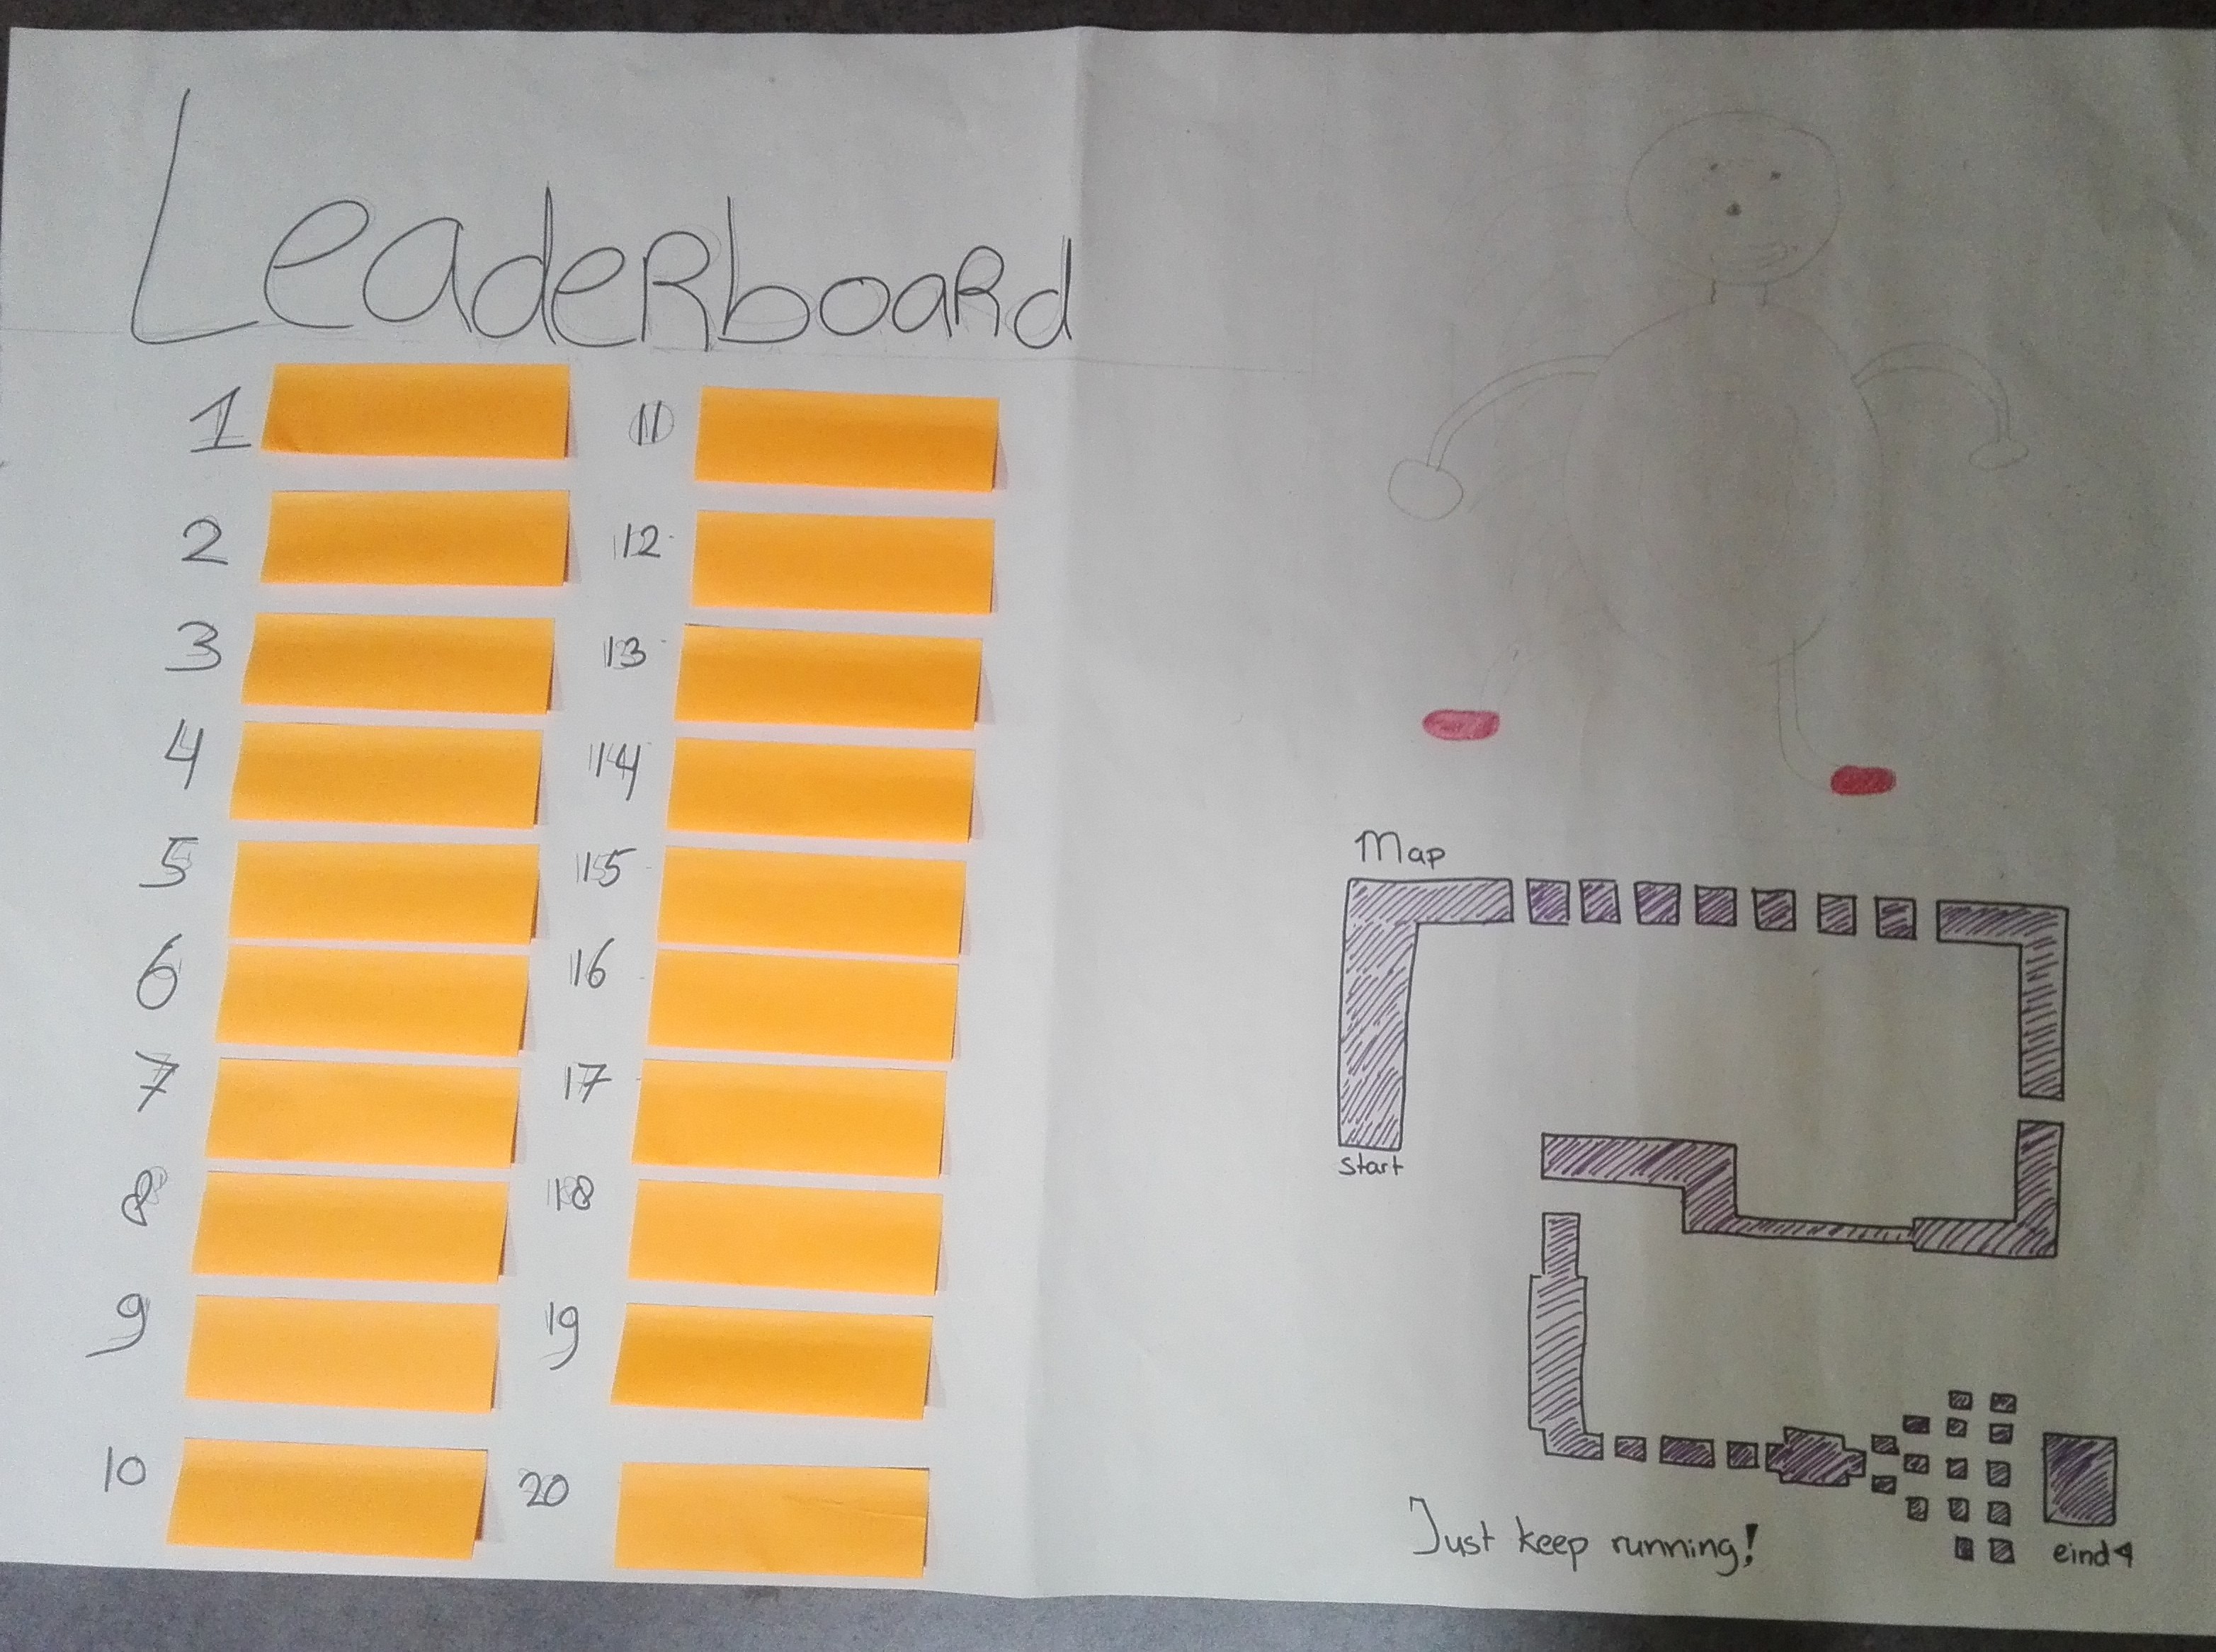 LeadeRboaRd
1
2
3
4
5
6
7
8
9
10
11
12
13
14
15
16
17
18
19
20
Map
Start
Just keep running!
eind